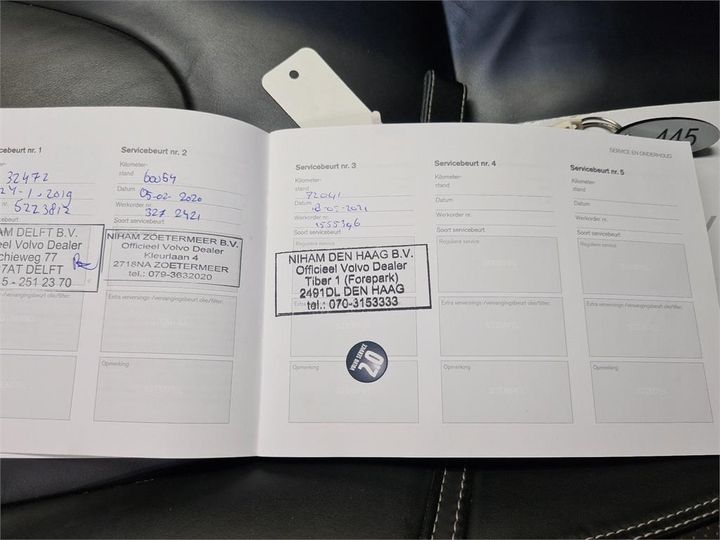 SERVICE EN ONDERHOUD
445
Servicebeurt nr. 1
32472
24-1-2019
5223812
AM DELFT B.V.
eel Volvo Dealer
chieweg 77
TAT DELFT
5-251 23 70
Servicebeurt nr. 2
Kilometer-
stand 60054
Datum 05-02-2020
Werkorder nr. 327 2421
Soort servicebeurt
NIHAM ZOETERMEER B.V.
Officieel Volvo Dealer
Kleurlaan 4
2718NA ZOETERMEER
tel.: 079-3632020
Extra verversings-/vervangingsbeurt olie/filter:
Opmerking
Servicebeurt nr. 3
Kilometer-
stand 72041
Datum
Werkorder nr. 1555346
Soort servicebeurt
Reguliere service:
NIHAM DEN HAAG B.V.
Officieel Volvo Dealer
Tiber 1 (Forepark)
2491DL DEN HAAG
tel.: 070-3153333
VOLVO SERVICE
2.0
Opmerking
Servicebeurt nr. 4
Kilometer-
stand
Datum
Werkorder nr.
Soort servicebeurt
Reguliere service:
Extra verversings-/vervangingsbeurt olie/filter:
Opmerking
Servicebeurt nr. 5
Kilometer-
stand
Datum
Werkorder nr.
Soort servicebeurt
Reguliere service:
Extra verversings-/vervangingsbeurt olie/filter:
Opmerking